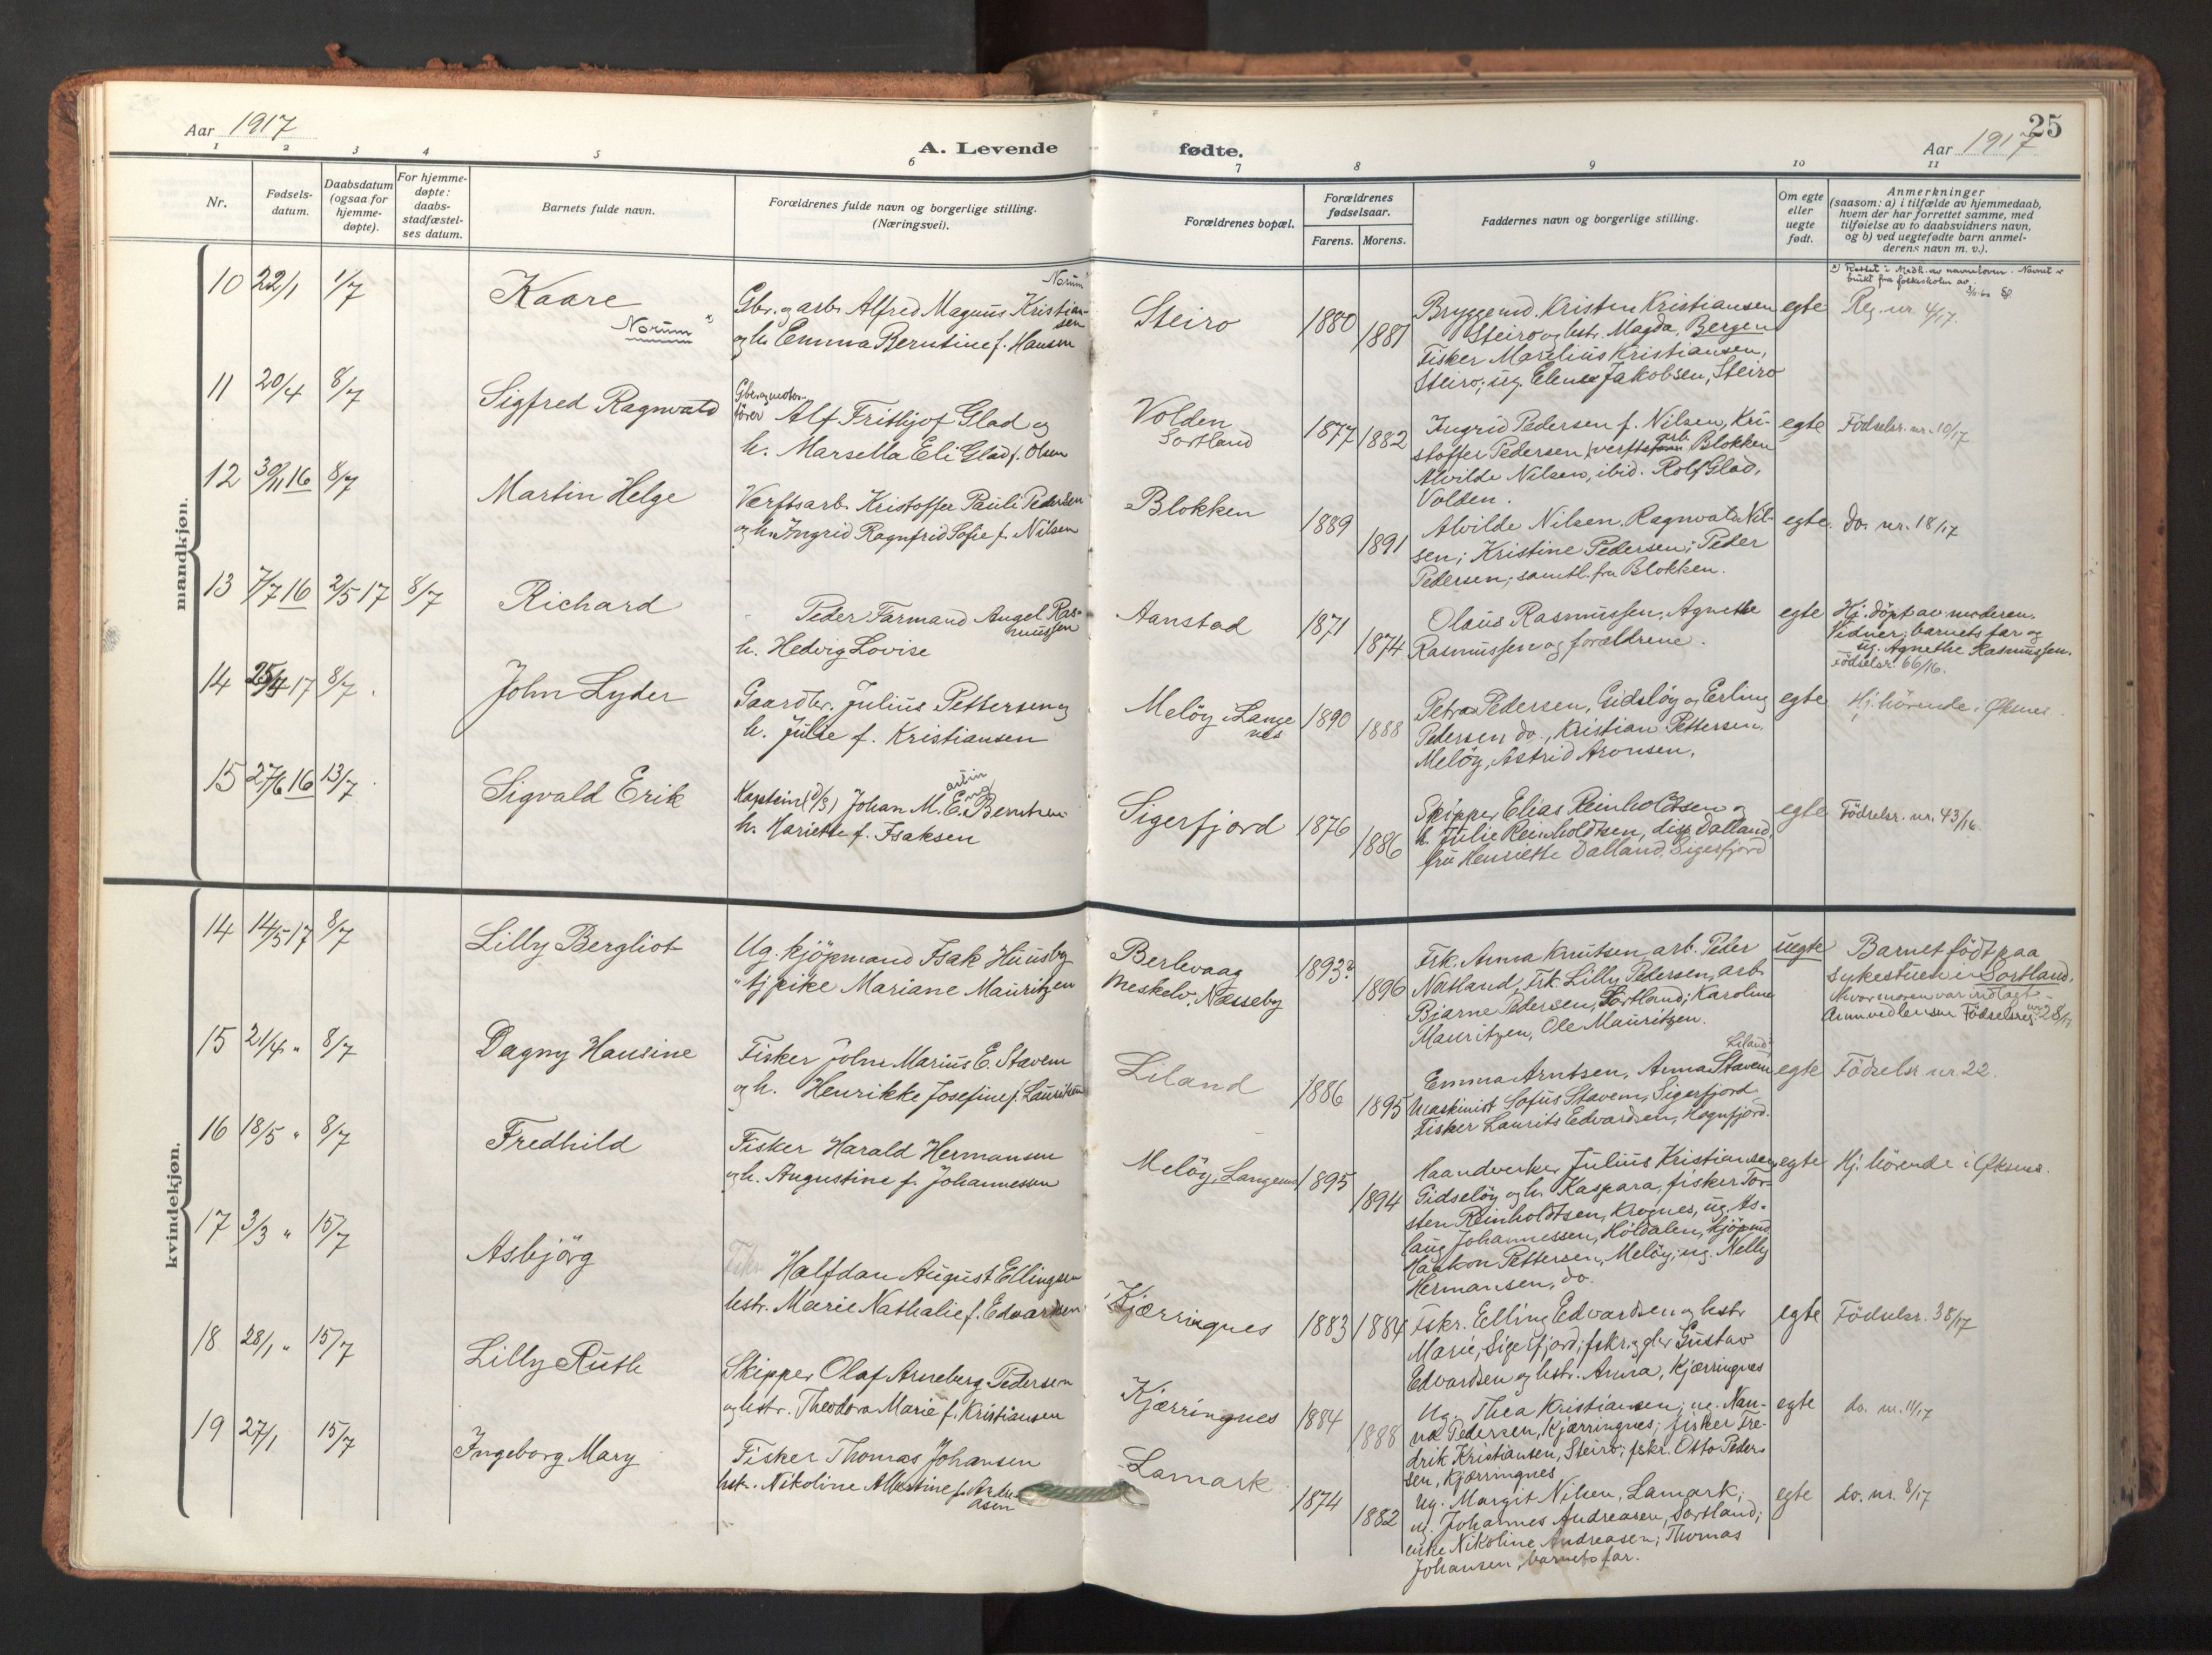 25
Aar 1917
A. Levende fødte.
Aar 1917
1 2 3 4 5 6 7 8 9 10 11
Nr.
Fødsels-
datum.
Daabsdatum
(ogsaa for
hjemme-
døpte).
For hjemme-
døpte:
daabs-
stadfæstel-
ses datum.
Barnets fulde navn.
Forældrenes fulde navn og borgerlige stilling.
(Næringsvei).
Forældrenes bopæl.
Forældrenes
fødselsaar.
Farens. Morens.
Faddernes navn og borgerlige stilling.
Om egte
eller
uegte
født.
Anmerkninger
(saasom: a) i tilfælde av hjemmedaab,
hvem der har forrettet samme, med
tilføielse av to daabsvidners navn,
og b) ved uegtefødte barn anmel-
derens navn m. v.).
mandkjøn.
10 22/1 1/7
Kaare
Norum x)
Norum x)
Gbr. og arb. Alfred Magnus Kristian-
sen
og h. Emma Berntine f. Hansen
Steiro
1880 1881
Bryggemd. Kristen Kristiansen
Steiro og hstr. Magda, Bergen
Fisker Marelius Kristiansen,
Steiro; ug. Elense Jakobsen, Steiro
egte
x) Rettet i Medh. av navneloven. Navnet er
brukt fra folkeskolen av.
Reg. nr. 4/17.
11 20/4 8/7
Sigfred Ragnvald
Gbr. og motor-
fører Alf Frithjof Glad og
h. Marsella Eli Glad f. Olsen
Volden
Sortland
1877 1882
Ingrid Pedersen f. Nilsen, Kri-
stoffer Pedersen, verftsarb. Blokken
Alvilde Nilsen, ibid. Rolf Glad,
Volden.
egte
Födselsr. nr. 10/17
12 30/11 16 8/7
Martin Helge
Verftsarb. Kristoffer Pauli Pedersen
og h. Ingrid Ragnfrid Sofie f. Nilsen
Blokken
1889 1891
Alvilde Nilsen, Ragnvald Nil-
sen; Kristine Pedersen; Peder
Pedersen; samtl. fra Blokken.
egte.
do. nr. 18/17
13 7/7 16 2/5 17 8/7
Richard
Peder Farmand Angel Ras-
mussen
h. Hedvig Lovise
Aanstad
1871 1874
Olaus Rasmussen, Agnethe
Rasmussen og forældrene.
egte
Hj. döpt av moderen.
Vidner: barnets far og
ug. Agnethe Rasmussen.
Födselsr. 66/16.
14 25/4 17 8/7
John Lyder
Gaardbr. Julius Pettersen og
h. Julie f. Kristiansen
Melöy, Lange
nes
1890 1888
Petra Pedersen, Gidslöy og Erling
Pedersen do., Kristian Pettersen,
Melöy, Astrid Aronsen.
egte
Hj. hörende i Øksnes.
15 27/6 16 13/7
Sigvald Erik
Kaptein (D/S) Johan M. E. Berntsen
h. Hariette f. Isaksen
Sigerfjord
1876 1886
Skipper Elias Reinholdtsen og
h. Julie Reinholdtsen, disp. Dalland,
fru Henriette Dalland, Sigerfjord
egte
Födselsr. nr. 43/16.
kvindekjøn.
14 14/5 17 8/7
Lilly Bergliot
Ug. kjöpmand Isak Huusby
" tj.pike Mariane Mauritzen
Berlevaag
Meskelv, Næsseby
1893? 1896
Frk. Anna Knutsen, arb. Peter
Natland, Frk. Lilly Pedersen, arb.
Bjarne Pedersen, Sortland; Karoline
Mauritzen, Ole Mauritzen.
uegte
Barnet födt paa
sykestuen i Sortland.
hvor moren var indlagt
Anm. ved Födselsreg. nr. 28/17
15 21/4 " 8/7
Dagny Hansine
Fisker John Marius E. Stavem
og h. Henrikke Josefine f. Lauritsen
Liland
1886 1895
Liland
Emma Arntsen, Anna Stavem
Maskinist Sofus Stavem, Sigerfjord
Fisker Laurits Edvardsen, Hognfjord.
egte
Födselsr nr. 22.
16 18/5 " 8/7
Fredhild
Fisker Harald Hermansen
og h. Augustine f. Johannesen
Melöy, Langenes
1895 1894
Haandverker Julius Kristiansen
Gidselöy og h. Kaspara, fisker Tor-
sten Reinholdtsen, Krognes, ug. As-
laug Johannessen, Höldalen, kjöpmd.
Haakon Pettersen, Melöy; ug. Nelly
Hermansen, do.
egte
Hj. hörende i Øksnes.
17 3/3 " 15/7
Asbjörg
Halfdan August Ellingsen
hstr. Marie Nathalie f. Edvardsen
Kjærringnes
1883 1884
Fskr. Elling Edvardsen og hstr
Marie, Sigerfjord; fskr. og gbr Gustav
Edvardsen og hstr. Anna, Kjærringnes
egte
Födselsr. 38/17
18 28/1 " 15/7
Lilly Ruth
Skipper Olaf Arneberg Pedersen
og hstr. Theodora Marie f. Kristiansen
Kjærringnes
1884 1888
Ug. Thea Kristiansen; ug. Nan-
na Pedersen, Kjærringnes; fisker Fre-
drik Kristiansen, Steiro; fskr. Otto Peder-
sen, Kjærringnes
egte
do. nr. 11/17
19 27/1 15/7
Ingeborg Mary
Fisker Thomas Johansen
hstr. Nikoline Albertine f. Andre-
asen
Lamark
1874 1882
Ug. Margit Nilsen, Lamark;
ug. Johannes Andreasen, Sortland;
enke Nikoline Andreasen; Thomas
Johansen, barnets far.
egte
do. nr. 8/17